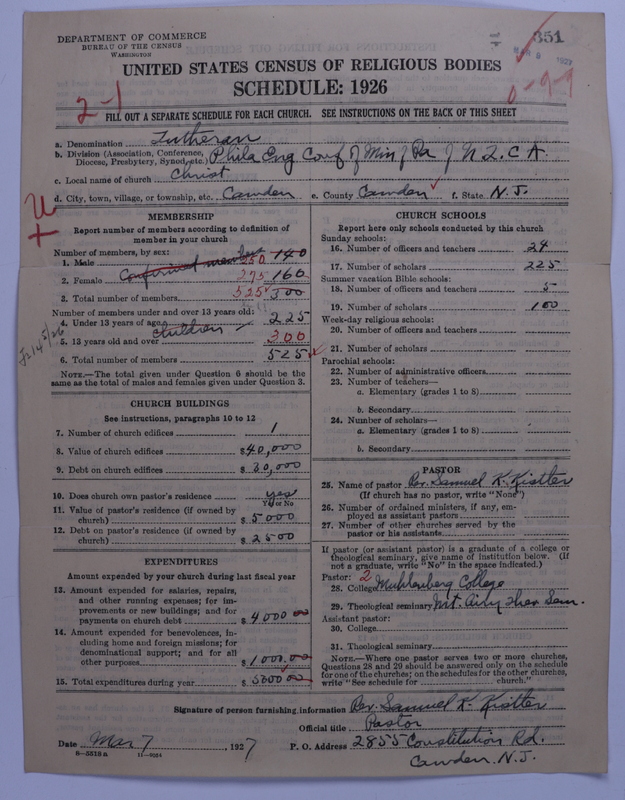 DEPARTMENT OF COMMERCE
BUREAU OF THE CENSUS
WASHINGTON
351
MAR 9 1927
0-9-9
UNITED STATES CENSUS OF RELIGIOUS BODIES
SCHEDULE: 1926
2-1
FILL OUT A SEPARATE SCHEDULE FOR EACH CHURCH. SEE INSTRUCTIONS ON THE BACK OF THIS SHEET
a. Denomination Lutheran
b. Division (Association, Conference, Diocese, Presbytery, Synod, etc.) Phila Eng Conf of Min of Pa of U.L.C.A.
c. Local name of church Christ
d. City, town, village, or township, etc. Camden e. County Camden f. State N.J.
MEMBERSHIP
Report number of members according to definition of
member in your church
Number of members, by sex:
1. Male 250 140
Confirmed members
2. Female 275 160
3. Total number of members 525 300
Number of members under and over 13 years old:
4. Under 13 years of age 225
children
5. 13 years old and over 300
6. Total number of members 525
NOTE.—The total given under Question 6 should be the
same as the total of males and females given under Question 3.
CHURCH BUILDINGS
See instructions, paragraphs 10 to 12
7. Number of church edifices 1
8. Value of church edifices $40,000
9. Debt on church edifices $30,000
10. Does church own pastor's residence yes
Yes or No
11. Value of pastor's residence (if owned by
church) $5000
12. Debt on pastor's residence (if owned by
church) $2500
EXPENDITURES
Amount expended by your church during last fiscal year
13. Amount expended for salaries, repairs,
and other running expenses; for im-
provements or new buildings; and for
payments on church debt $4000 00
14. Amount expended for benevolences, in-
cluding home and foreign missions; for
denominational support; and for all
other purposes $1000.00
15. Total expenditures during year $5000 00
CHURCH SCHOOLS
Report here only schools conducted by this church
Sunday schools:
16. Number of officers and teachers 24
17. Number of scholars 225
Summer vacation Bible schools:
18. Number of officers and teachers 5
19. Number of scholars 100
Week-day religious schools:
20. Number of officers and teachers
21. Number of scholars
Parochial schools:
22. Number of administrative officers
23. Number of teachers—
a. Elementary (grades 1 to 8)
b. Secondary
24. Number of scholars—
a. Elementary (grades 1 to 8)
b. Secondary
PASTOR
25. Name of pastor Rev. Samuel K. Kistler
(If church has no pastor, write "None")
26. Number of ordained ministers, if any, em-
ployed as assistant pastors
27. Number of other churches served by the
pastor or his assistants
If pastor (or assistant pastor) is a graduate of a college or
theological seminary, give name of institution below. (If
not a graduate, write "No" in the space indicated.)
Pastor: 2
28. College Muhlenberg College
29. Theological seminary Mt. Airy Theo. Sem.
Assistant pastor:
30. College
31. Theological seminary
NOTE.—Where one pastor serves two or more churches,
Questions 28 and 29 should be answered only on the schedule
for one of the churches; on the schedules for the other churches,
write "See schedule for church."
Signature of person furnishing information Rev. Samuel K. Kistler
Official title Pastor
Date Mar 7, 1927 P. O. Address 2855 Constitution Rd.
8-5512a 11-9024 Camden. N.J.